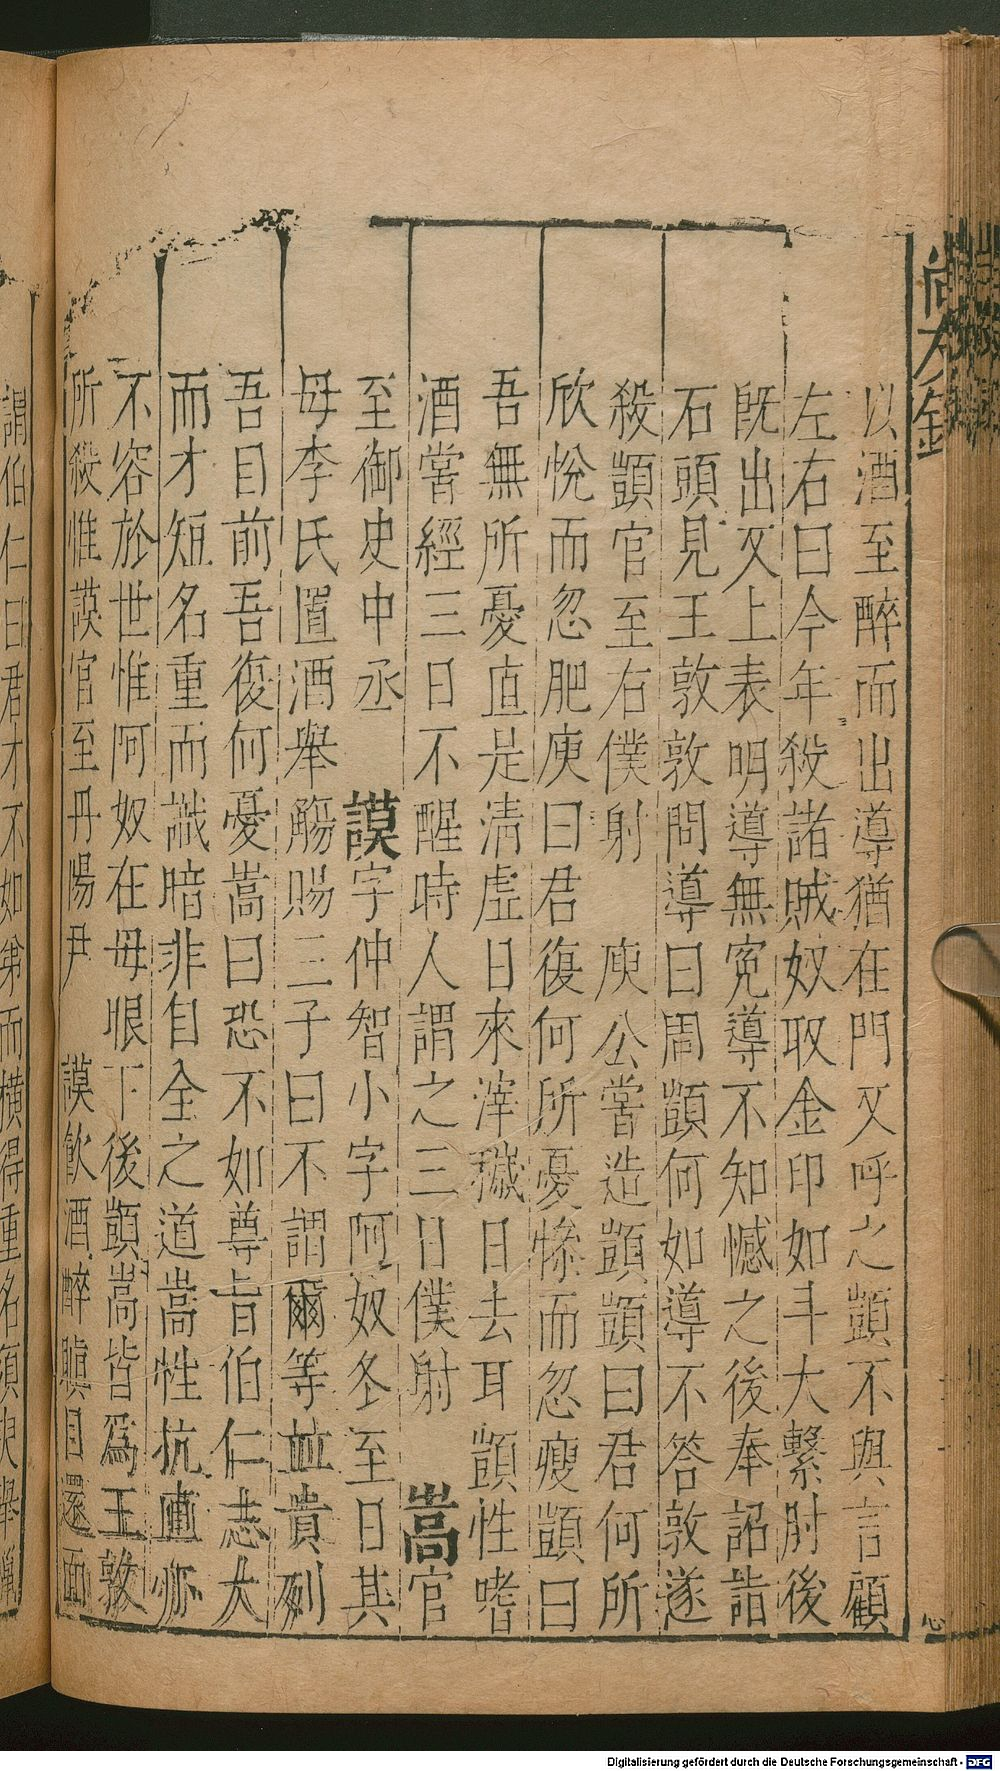 以酒至醉而出導猶在門又呼之顗不與言顧
左右曰今年殺諸賊奴取金印如斗大繫肘後
既出又上表明導無冤導不知憾之後奉詔詣
石頭見王敦敦問導曰周顗何如導不答敦遂
殺顗官至右僕射　庾公嘗造顗顗曰君何所
欣悅而忽肥庾曰君復何所憂慘而忽瘦顗曰
吾無所憂直是清虛日來滓穢日去耳顗性嗜
酒嘗經三日不醒時人謂之三日僕射　嵩官
至御史中丞　謨字仲智小字阿奴冬至日其
母李氏置酒舉觴賜三子曰不謂爾等並貴列
吾目前吾復何憂嵩曰恐不如尊旨伯仁志大
而才短名重而識暗非自全之道嵩性抗直亦
不容於世惟阿奴在母眼下後顗嵩皆為王敦
所殺惟謨官至丹陽尹　謨飲酒醉瞋目還面
謂伯仁曰君才不如弟而橫得重名須臾舉
Digitalisierung gefördert durch die Deutsche Forschungsgemeinschaft - DFG